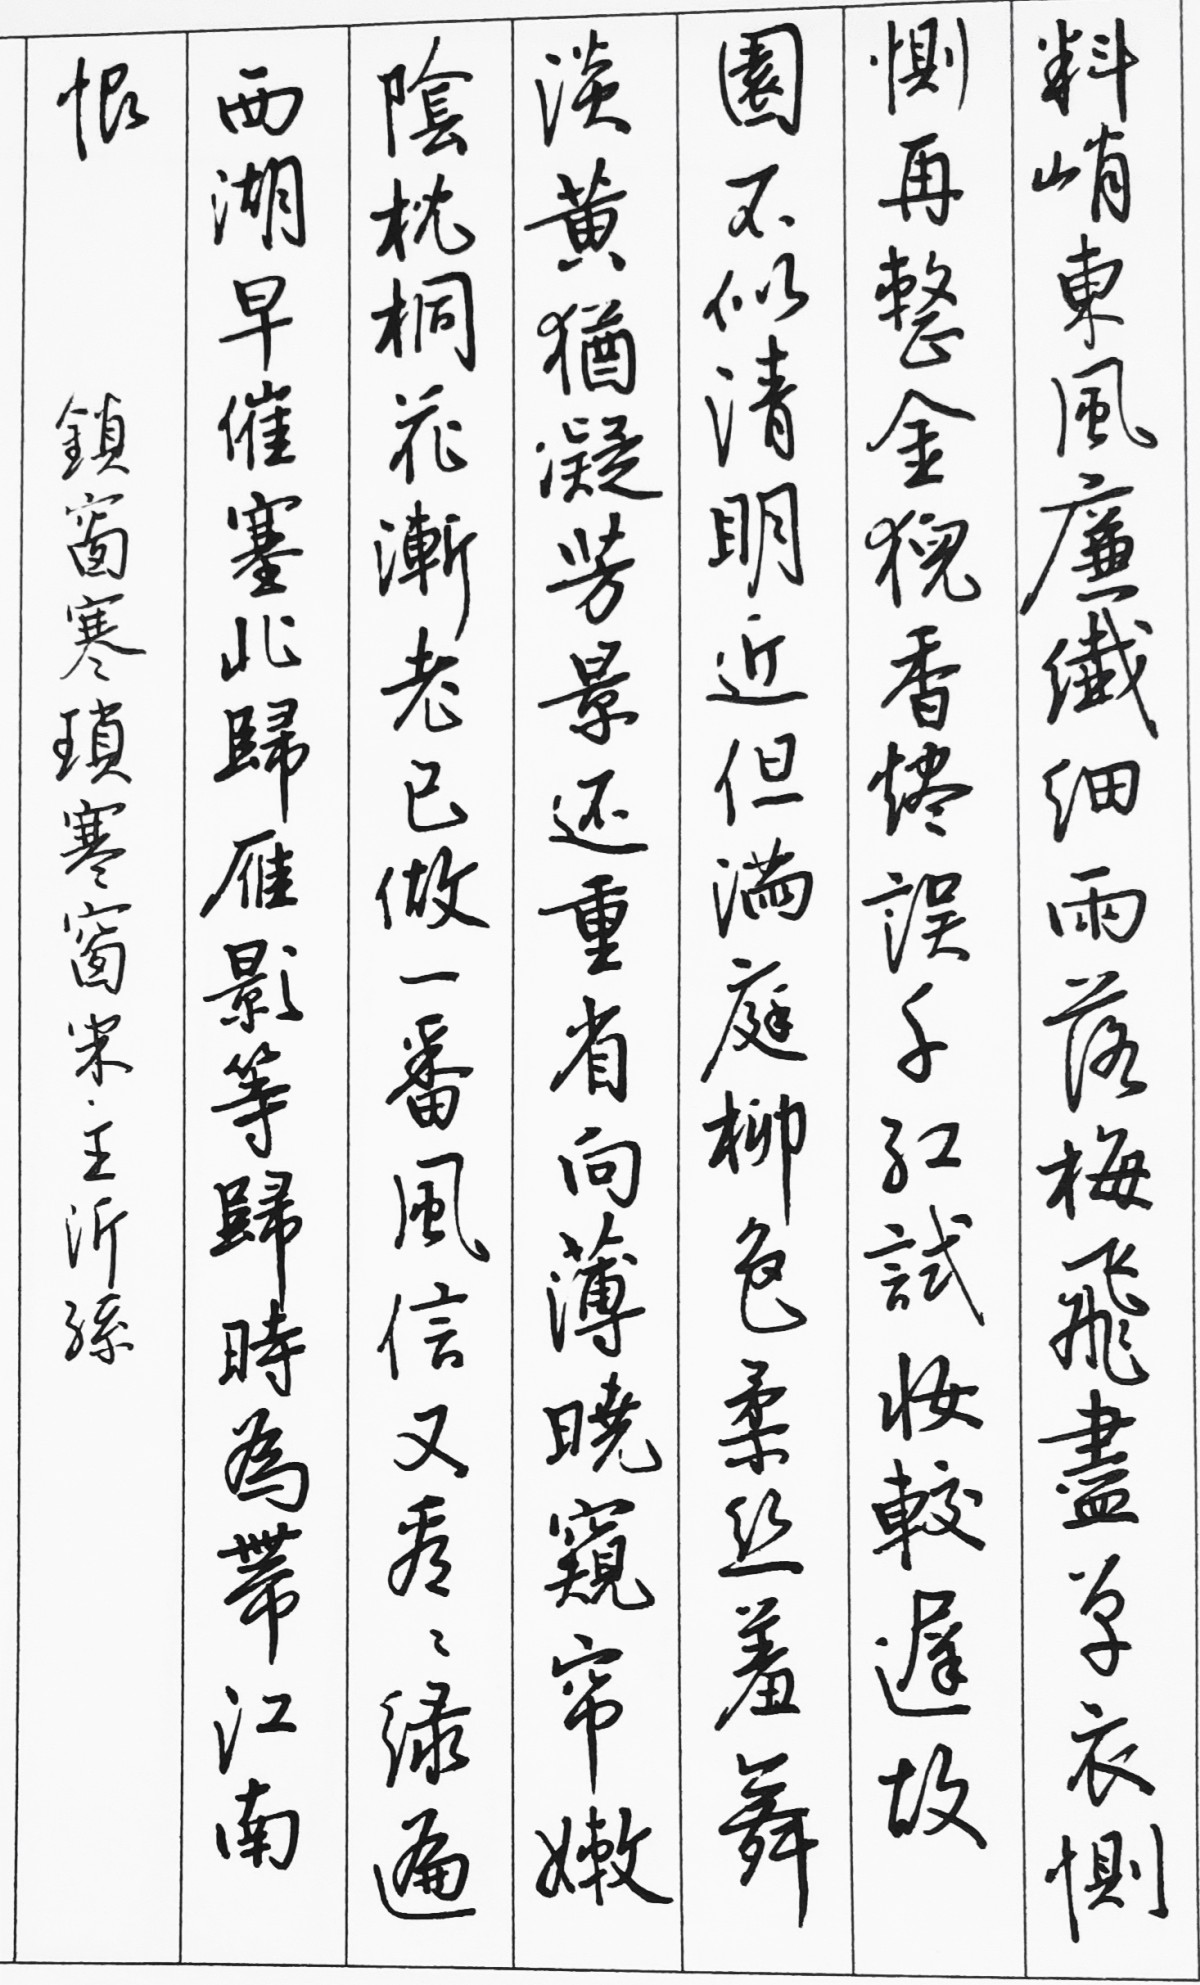 料峭東風廉纖細雨落梅飛盡單衣惻
惻再整金猊香燼誤千紅試妝較遲故
園不似清明近但滿庭柳色柔丝羞舞
淡黃猶凝芳景还重省向薄曉窺帘嫩
陰枕桐花漸老已做一番風信又看〻绿遍
西湖早催塞北歸雁影等歸時為帶江南
恨
鎖窗寒瑣寒窗宋·王沂孫